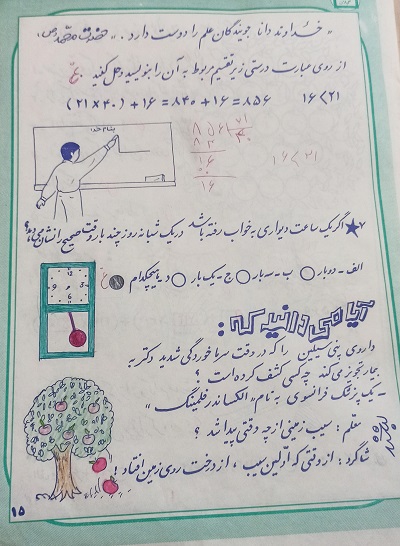 « خداوند دانا جویندگان علم را دوست دارد. » حضرت محمد (ص)
از روی عبارت درستی زیر تقسیم مربوط به آن را بنویسید و حل کنید
(۲۱×۴۰) + ۱۶ = ۸۴۰ + ۱۶ = ۸۵۶   ۱۶<۲۱
بنام خدا
۸۵۶ ۲۱
۴۰
۱۶
۱۶<۲۱
۷ اگر یک ساعت دیواری به خواب رفته باشد در یک شبانه روز چند بار وقت صحیح را نشان می‌دهد؟
الف - دوبار ب - سه بار ج - یک بار د - هیچکدام
12
9 3
6
آیا می دانید که:
داروی پنی سیلین را که در وقت سرما خوردگی شدید دکتر به
بیمار تجویز می کند چه کسی کشف کرده است ؟
- یک پزشک فرانسوی به نام « الکساندر فلمینگ »
معلم : سیب زمینی از چه وقتی پیدا شد ؟
شاگرد : از وقتی که اولین سیب ، از درخت روی زمین افتاد !
۱۵